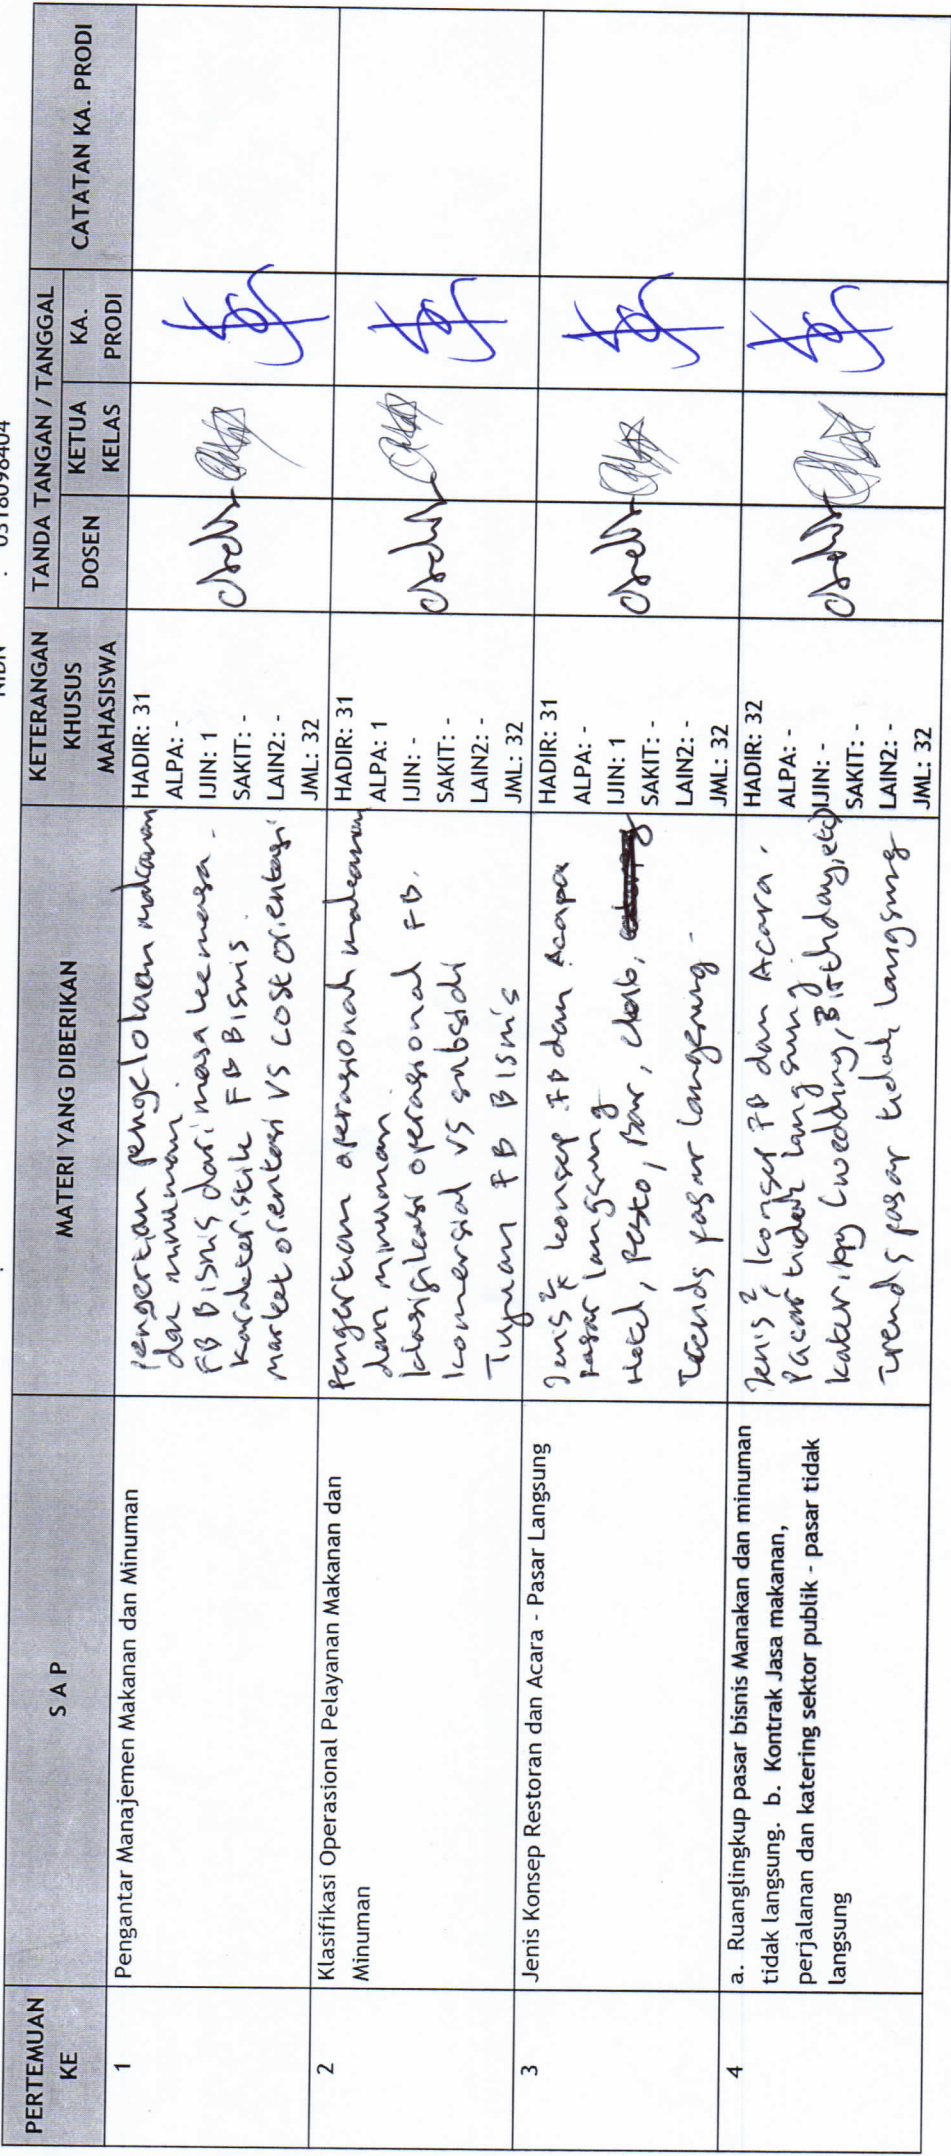 NIDN : 0318098404
PERTEMUAN KE
S A P
MATERI YANG DIBERIKAN
KETERANGAN KHUSUS MAHASISWA
TANDA TANGAN / TANGGAL
DOSEN
KETUA KELAS
KA. PRODI
CATATAN KA. PRODI
1
Pengantar Manajemen Makanan dan Minuman
Pengertian pengelolaan makanan
dan minuman.
FB Bisnis dari masa ke masa.
Karakteristik FB Bisnis.
Market orentasi VS cost orientasi
HADIR: 31
ALPA: -
IJIN: 1
SAKIT: -
LAIN2: -
JML: 32
2
Klasifikasi Operasional Pelayanan Makanan dan
Minuman
Pengertian operasional makanan
dan minuman.
klasifikasi operasional FB.
komersial VS subsidi
Tujuan FB Bisnis
HADIR: 31
ALPA: 1
IJIN: -
SAKIT: -
LAIN2: -
JML: 32
3
Jenis Konsep Restoran dan Acara - Pasar Langsung
Jenis2 konsep FB dan Acara
Pasar langsung
Hotel, Resto, Bar, club,
Trends pasar langsung -
HADIR: 31
ALPA: -
IJIN: 1
SAKIT: -
LAIN2: -
JML: 32
4
a. Ruanglingkup pasar bisnis Manakan dan minuman
tidak langsung. b. Kontrak Jasa makanan,
perjalanan dan katering sektor publik - pasar tidak
langsung
Jenis2 konsep FB dan Acara.
Pasar tidak langsung.
(wedding, Birthday, etc)
Trends pasar tidak langsung
HADIR: 32
ALPA: -
IJIN: -
SAKIT: -
LAIN2: -
JML: 32